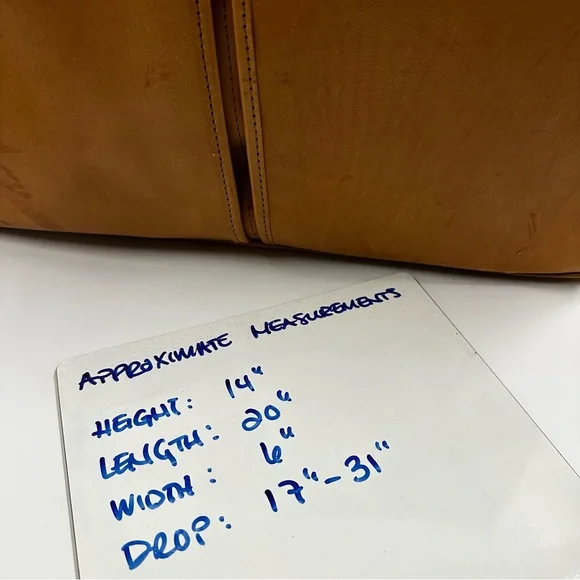 APPROXIMATE MEASUREMENTS
HEIGHT: 14"
LENGTH: 20"
WIDTH: 6"
DROP: 17"-31"